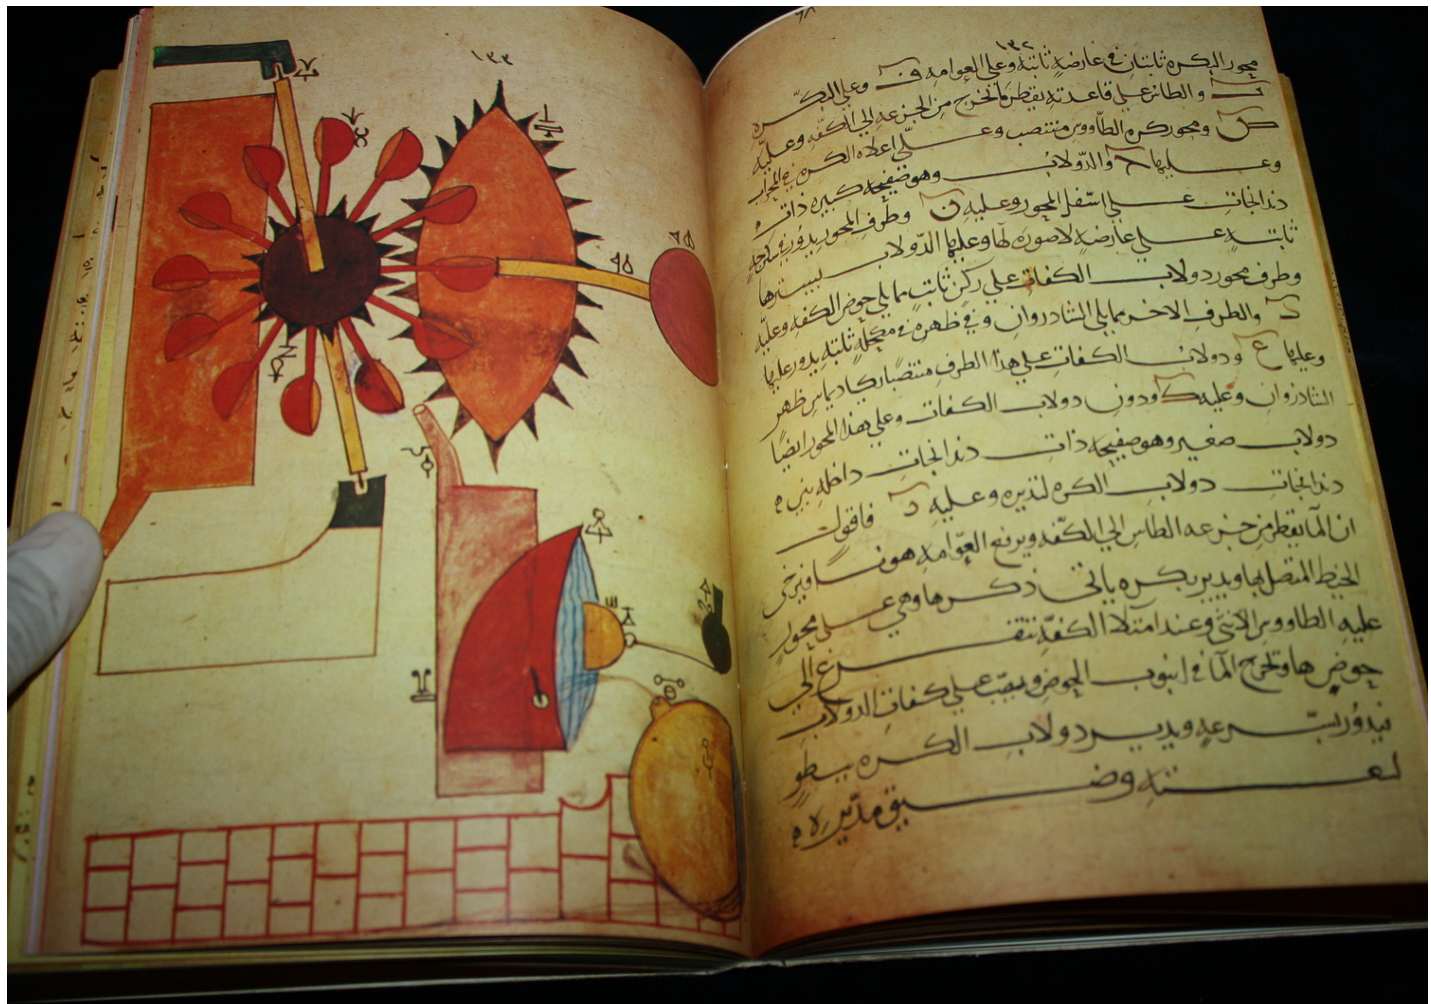 ١٣٢
محور البكره ثابتان في عارضةٍ ثابتة وعلى العوامه ف وعلى البكره
والطاس على قاعدته يقطر ما يخرج من الجزعه الى الكفه وعليه
ص ومحور كره الطاووس منتصب وعلى اعلاه الكره في المحراب
وعليها ح والدولاب وهو صفيحه كبيره ذات
دندانجات على اسفل المحور وعليه ن وطرف المحور يدور في
ثابتةٍ على عارضةٍ لا صوره لها وعليها الدولاب يسترها
وطرف محور دولاب الكفات على ركن ثابت مما يلي حوض الكفه وعليه
والطرف الاخر مما يلي الشاذروان وفي ظهره في مكحلةٍ ثابتةٍ يدور عليها
وعليها ع ودولاب الكفات على هذا الطرف منتصبا يكاد يماس ظهر
الشاذروان وعليه ك ودون دولاب الكفات وعلى هذا المحور ايضا
دولاب صغير وهو صفيحه ذات دندانجات داخله بين
دندانجات دولاب الكره لتديره وعليه د فاقول
ان الما يقطر من جزعه الطاس الى الكفه ويرفع العوامه هونا فيرخى
الخيط المتصل بها ويدير بكره ياتى ذكرها وهي على محور
عليه الطاووس الانثى وعند امتلاء الكفه تتفرغ الى
حوضها ويخرج الما في انبوب الحوض ويصب على كفات الدولاب
فيدور بسرعه ويدير دولاب الكره ببطو
لعتته وضيق مدبره
١٣٣